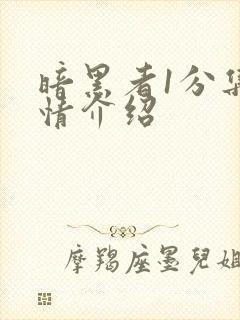 暗黑者1分集
情介绍
摩羯座墨兒姐